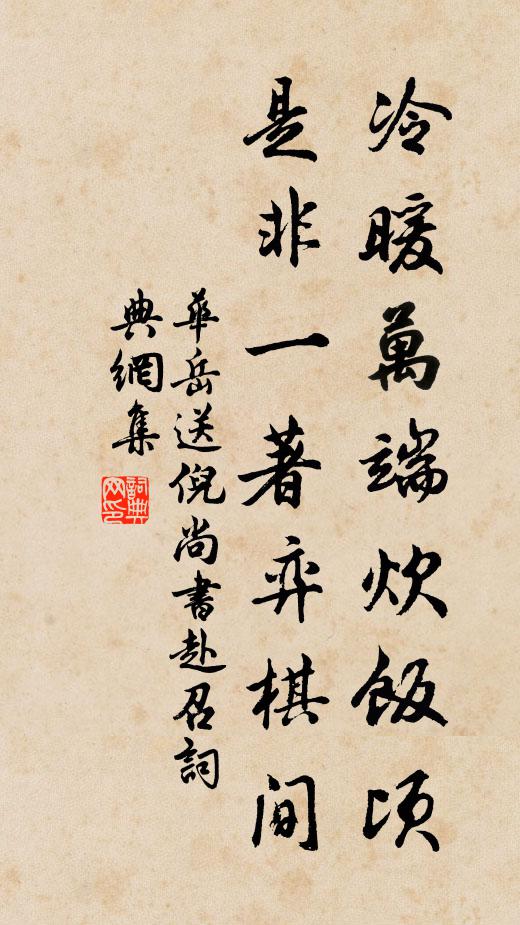 冷暖萬端炊飯頃
是非一著弈棋間
華岳送倪尚書赴召詞
典網集
詞典網印